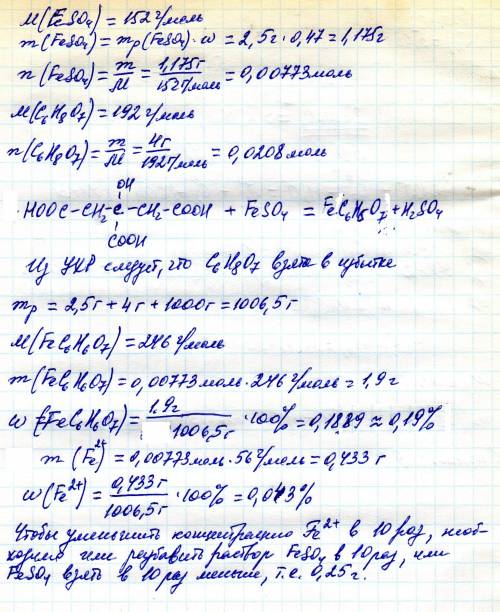 M(FeSO₄) = 152 г/моль
m(FeSO₄) = mр(FeSO₄)·ω = 2,5г·0,47 = 1,175г
n(FeSO₄) = m/M = 1,175г/152г/моль = 0,00773моль
M(C₆H₈O₇) = 192 г/моль
n(C₆H₈O₇) = m/M = 4г/192г/моль = 0,0208моль
OH
HOOC–CH₂–C–CH₂–COOH + FeSO₄ = FeC₆H₆O₇ + H₂SO₄
COOH
Из УХР следует, что C₆H₈O₇ взята в избытке
mр = 2,5г + 4г + 1000г = 1006,5г
M(FeC₆H₆O₇) = 246 г/моль
m(FeC₆H₆O₇) = 0,00773моль·246 г/моль = 1,9г
ω(FeC₆H₆O₇) = 1.9г/1006,5г ·100% = 0,1889 ≈ 0,19%
m(Fe²⁺) = 0,00773моль·56 г/моль = 0,433 г
ω(Fe²⁺) = 0,433г/1006,5г ·100% = 0,043%
Чтобы уменьшить концентрацию Fe²⁺ в 10 раз, необ-
ходимо или разбавить раствор FeSO₄ в 10 раз, или
FeSO₄ взять в 10 раз меньше, т.е. 0,25г.